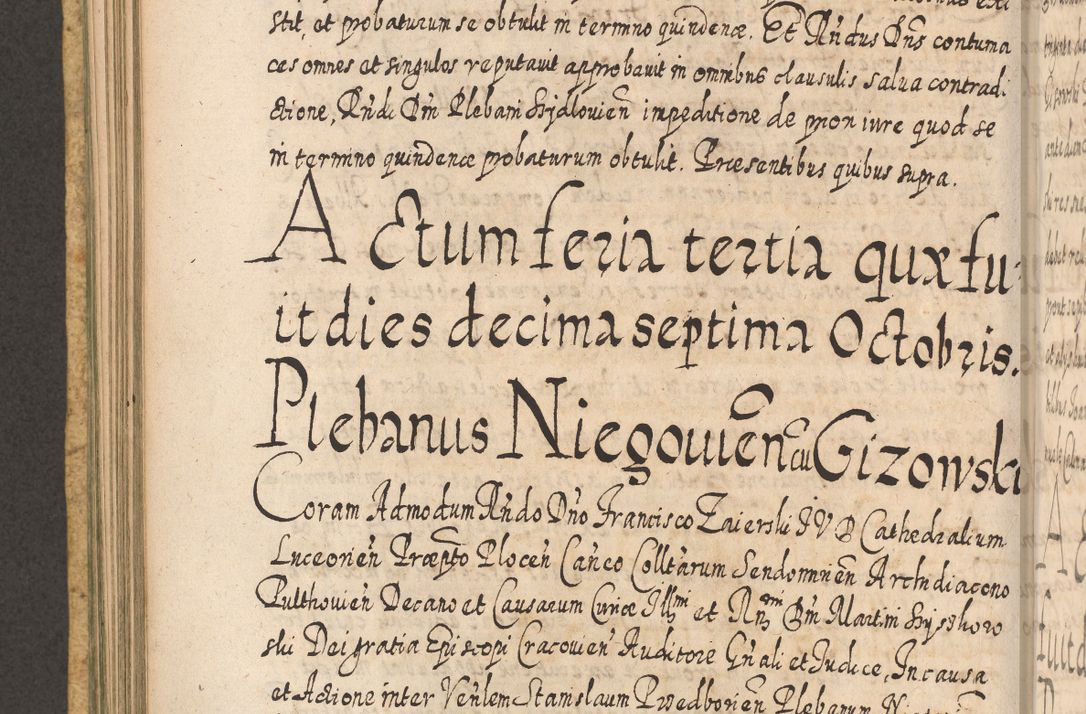 stit, et probaturum se obtulit in termino quindenæ. Et Rñdus Dñs contuma
ces omnes et singulos reputauit approbauit in omnibus clausulis salua contradi
ctione, Rñdi Dñi Plebani Sydlouien̄ impeditione de prori iure quod se
in termino quindenæ probaturum obtulit. Præsentibus quibus supra.
Actum feria tertia quæ fu
it dies decima septima Octobris.
Plebanus Niegouien̄ cū Gizowski
Coram Admodum Rñdo Dño Francisco Zaierski IVD Cathedralium
Luceorien̄ Præpto Plocen̄ Can̄co Colltarum Sendomirien̄ Archidiacono
Pultouien̄ Decano et Causarum Curiæ Illmi et Rndmi Dñi Martini Szyszkow
ski Dei gratia Episcopi Cracouien̄ Auditore Gn̄ali et Iudice, In causa
et Actione inter Ven̄lem Stanislaum Przedborien̄ Plebanum